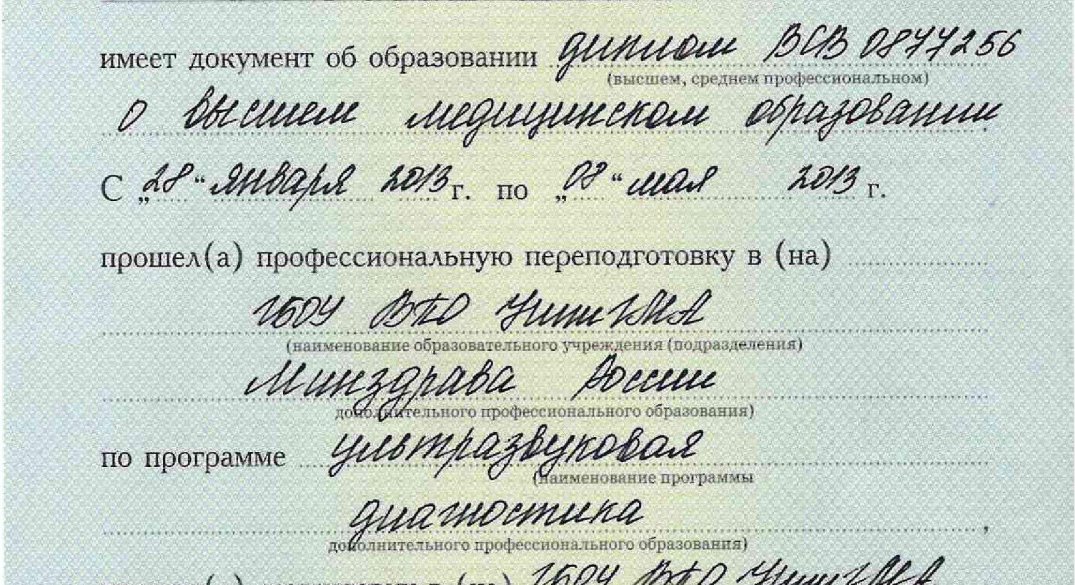 имеет документ об образовании диплом ВСВ 0877256
(высшем, среднем профессиональном)
о высшем медицинском образовании
С „28“ января 2013 г. по „08“ мая 2013 г.
прошел(а) профессиональную переподготовку в (на)
ГБОУ ВПО НижГМА
(наименование образовательного учреждения (подразделения)
Минздрава России
дополнительного профессионального образования)
по программе ультразвуковая
(наименование программы
диагностика,
дополнительного профессионального образования)
(на) ГБОУ ВПО НижГМА